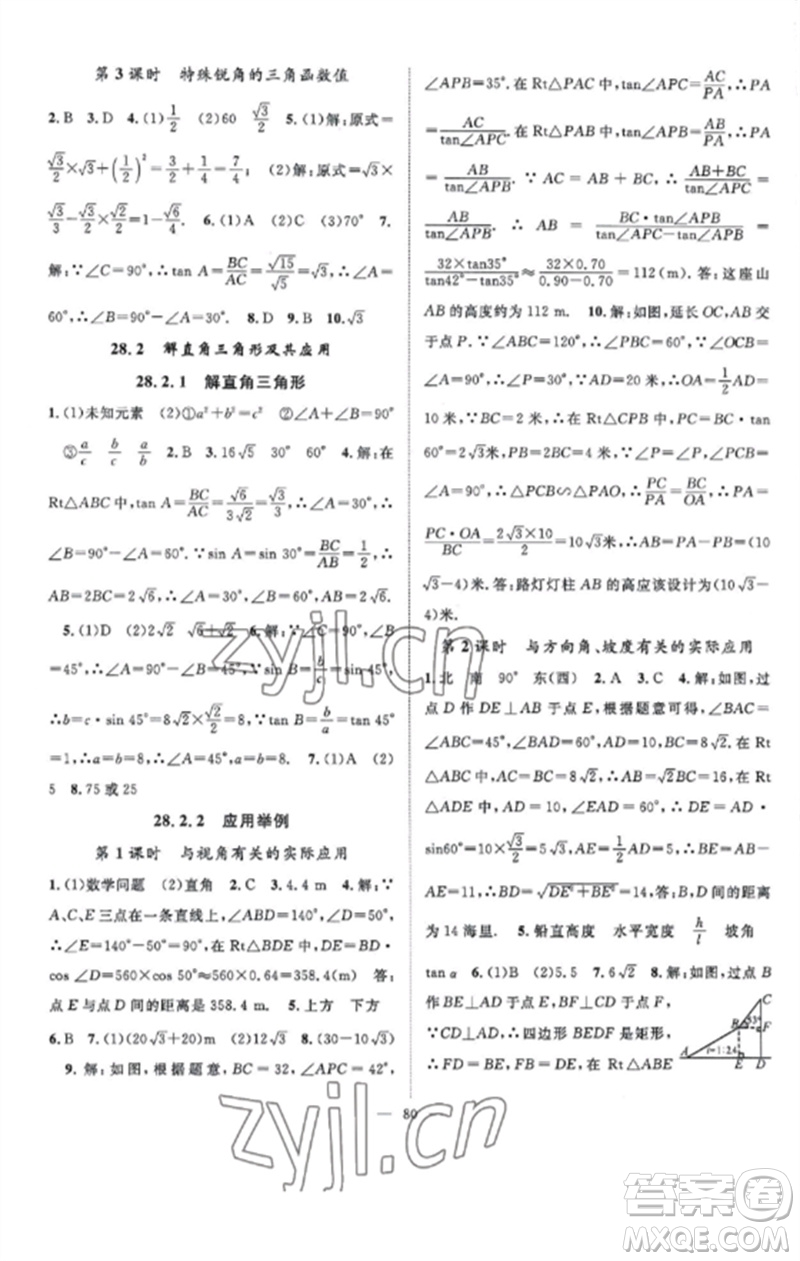 第 3 课时　特殊锐角的三角函数值
2. B　3. D　4. (1) 1/2　(2) 60　√3/2　5. (1) 解：原式＝
√3/2 × √3 ＋ (1/2)² ＝ 3/2 ＋ 1/4 ＝ 7/4；　(2) 解：原式＝
√3/3 － √3/2 × √2/2 ＝ 1－√6/4.　6. (1) A　(2) C　(3) 70°　7.
解：∵∠C＝90°，∴tan A＝BC/AC＝√15/√5＝√3，∴∠A＝
60°，∴∠B＝90°－∠A＝30°.　8. D　9. B　10. √3
28.2　解直角三角形及其应用
28.2.1　解直角三角形
1. (1) 未知元素　(2) ①a²＋b²＝c²　②∠A＋∠B＝90°
③ a/c　b/c　a/b　2. B　3. 16√5　30°　60°　4. 解：在
Rt△ABC 中，tan A＝BC/AC＝√6/3√2＝√3/3，∴∠A＝30°，
∠B＝90°－∠A＝60°. ∵sin A＝sin 30°＝BC/AB＝1/2，∴
AB＝2BC＝2√6，∴∠A＝30°，∠B＝60°，AB＝2√6.
5. (1) D　(2) 2√2　√6＋√2　6. 解：∵∠C＝90°，∠B＝
45°，∴∠A＝90°－∠B＝45°. ∵sin B＝b/c＝sin 45°，
∴b＝c・sin 45°＝8√2×√2/2＝8. ∵tan B＝b/a＝tan 45°
＝1，∴a＝b＝8，∴∠A＝45°，a＝8，b＝8.　7. (1) A　(2)
5　8. 75 或 25
28.2.2　应用举例
第 1 课时　与视角有关的实际应用
1. (1) 数学问题　(2) 直角　2. C　3. 4.4 m　4. 解：∵
A、C、E 三点在一条直线上，∠ABD＝140°，∠D＝50°，
∴∠E＝140°－50°＝90°，在 Rt△BDE 中，DE＝BD・
cos ∠D＝560×cos 50°≈560×0.64＝358.4 m　答：
点 E 与点 D 间的距离是 358.4 m.　5. 上方　下方
6. B　7. (1)(20√3＋20)m　(2)12√3　8. (30－10√3)
9. 解：如图，根据题意，BC＝32，∠APC＝42°，
∠APB＝35°. 在 Rt△PAC 中，tan∠APC＝AC/PA，∴PA
＝AC/tan∠APC. 在 Rt△PAB 中，tan∠APB＝AB/PA，∴PA
＝AB/tan∠APB. ∵ AC ＝ AB ＋ BC，∴ (AB＋BC)/tan∠APC ＝
AB/tan∠APB. ∴ AB ＝ BC・tan∠APB/(tan∠APC－tan∠APB) ＝
32×tan35°/(tan42°－tan35°) ≈ 32×0.70/(0.90－0.70)＝112(m). 答：这座山
AB 的高度约为 112 m.　10. 解：如图，延长 OC，AB 交
于点 P. ∵∠ABC＝120°，∴∠PBC＝60°. ∵∠OCB＝
∠A＝90°，∴∠P＝30°. ∵AD＝20 米，∴OA＝1/2AD＝
10 米. ∵BC＝2 米，∴在 Rt△CPB 中，PC＝BC・tan
60°＝2√3米，PB＝2BC＝4 米，∵∠P＝∠P，∠PCB＝
∠A＝90°，∴△PCB∽△PAO，∴PC/PA＝BC/OA，∴PA＝
PC・OA/BC＝2√3×10/2＝10√3米，∴AB＝PA－PB＝(10
√3－4)米. 答：路灯灯柱 AB 的高应该设计为(10√3－
4)米.
第 2 课时　与方向角、坡度有关的实际应用
1. 北　南　90°　东(西)　2. A　3. C　4. 解：如图，过
点 D 作 DE⊥AB 于点 E，根据题意可得，∠BAC＝
∠ABC＝45°，∠BAD＝60°，AC＝BC＝8√2. 在 Rt
△ABC 中，AC＝BC＝8√2，∴AB＝√2AC＝16，在 Rt
△ADE 中，AD＝10，∠EAD＝60°，∴ DE＝AD・
sin60°＝10×√3/2＝5√3，AE＝1/2AD＝5，∴BE＝AB－
AE＝11，∴BD＝√(DE²＋BE²)＝14(海里). 答：BD 的长
为 14 海里.　5. 铅直高度　水平宽度　h/l　坡角
tan α　6. (1)B　(2)5.5　7. 6√2　8. 解：如图，过点 B
作 BE⊥AD 于点 E，BF⊥CD 于点 F，
∵CD⊥AD，∴四边形 BEDF 是矩形，
∴FD＝BE，FB＝DE，在 Rt△ABE
C
53°
B
F
A
i＝1:2.4
E
D
80
zyjl.cn
zyjl.cn
答案圈
MXQE.COM